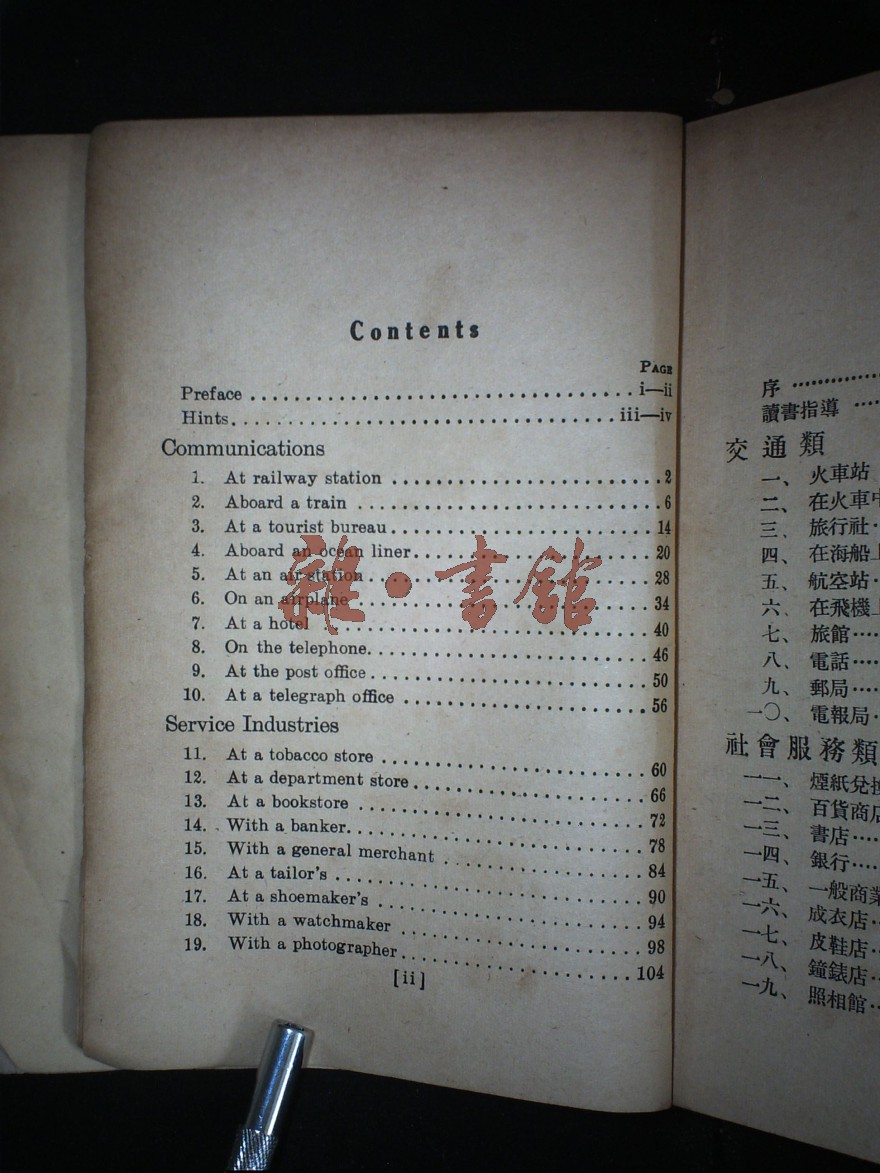 Contents
PAGE
Preface ........ i—ii
Hints ........ iii—iv
Communications
1. At railway station ........ 2
2. Aboard a train ........ 6
3. At a tourist bureau ........ 14
4. Aboard an ocean liner ........ 20
5. At an air station ........ 28
6. On an airplane ........ 34
7. At a hotel ........ 40
8. On the telephone ........ 46
9. At the post office ........ 50
10. At a telegraph office ........ 56
Service Industries
11. At a tobacco store ........ 60
12. At a department store ........ 66
13. At a bookstore ........ 72
14. With a banker ........ 78
15. With a general merchant ........ 84
16. At a tailor's ........ 90
17. At a shoemaker's ........ 94
18. With a watchmaker ........ 98
19. With a photographer ........ 104
[ii]
雜·書館
序 ........
讀書指導 ........
交通類
一、 火車站
二、 在火車中
三、 旅行社
四、 在海船上
五、 航空站
六、 在飛機上
七、 旅館
八、 電話
九、 郵局
一〇、 電報局
社會服務類
一一、 煙紙兌換
一二、 百貨商店
一三、 書店
一四、 銀行
一五、 一般商業
一六、 成衣店
一七、 皮鞋店
一八、 鐘錶店
一九、 照相館